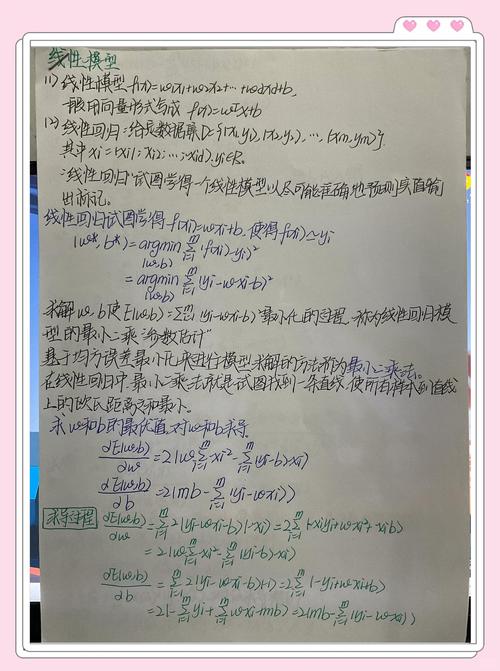 线性模型
(1) 线性模型 f(x)=w1x1+w2x2+…+wdxd+b,
一般用向量形式写成 f(x)=wᵀx+b
(2) 线性回归:给定数据集D={(x1,y1),(x2,y2),…,(xm,ym)}
其中xi=(xi1;xi2;…;xid),yi∈R。
“线性回归”试图学得一个线性模型以尽可能准确地预测实值输
出标记。
线性回归试图学得 f(xi)=wxi+b,使得f(xi)≃yi
(w*,b*)=argmin Σᵢ₌₁ᵐ (f(xi)-yi)²
(w,b)
=argmin Σᵢ₌₁ᵐ (yi-wxi-b)²
(w,b)
求解w,b使E(w,b)=Σᵢ₌₁ᵐ(yi-wxi-b)²最小化的过程,称为线性回归模
型的最小二乘“参数估计”
基于均方误差最小化来进行模型求解的方法称为最小二乘法。
在线性回归中,最小二乘法就是试图找到一条直线,使所有样本到直线
上的欧氏距离之和最小。
求w和b的最优值,对w和b求导。
dE(w,b)/dw=2(wΣᵢ₌₁ᵐxi²-Σᵢ₌₁ᵐ(yi-b)xi)
dE(w,b)/db=2(mb-Σᵢ₌₁ᵐ(yi-wxi))
求导过程 dE(w,b)/dw=Σᵢ₌₁ᵐ2(yi-wxi-b)(-xi)=2Σᵢ₌₁ᵐ(-xiyi+wxi²+xib)
=2(wΣᵢ₌₁ᵐxi²-Σᵢ₌₁ᵐ(yi-b)xi)
dE(w,b)/db=Σᵢ₌₁ᵐ2(yi-wxi-b)(-1)=2Σᵢ₌₁ᵐ(-yi+wxi+b)
=2(-Σᵢ₌₁ᵐyi+Σᵢ₌₁ᵐwxi+mb)=2(mb-Σᵢ₌₁ᵐ(yi-wxi))